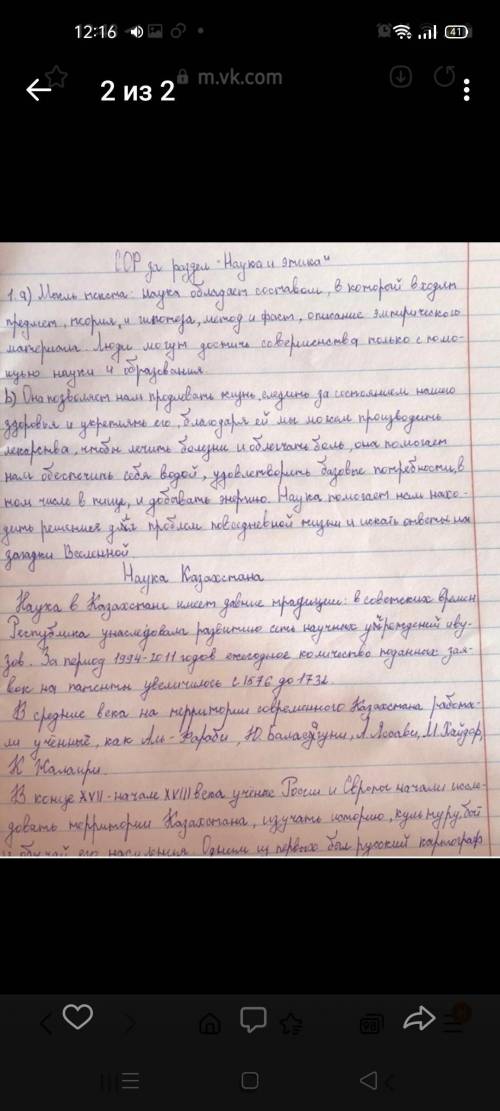 12:16
41
m.vk.com
2 из 2
СОР за раздел "Наука и этика"
1. а) Мысль текста: наука обладает составом, в которой входят
предмет, теория, и гипотеза, метод и факт, описание эмпирического
материала. Люди могут достичь совершенства только с помо-
щью науки и образования
b) Она позволяет нам продлевать жизнь, следить за состоянием нашего
здоровья и укреплять его, благодаря ей мы можем производить
лекарства, чтобы лечить болезни и облегчать боль, она помогает
нам обеспечить себя водой, удовлетворить базовые потребности, в
том числе в пище, и добывать энергию. Наука помогает нам нахо-
дить решения для проблем повседневной жизни и искать ответы на
загадки Вселенной
Наука Казахстана
Наука в Казахстане имеет давние традиции: в советских времен
Республика унаследовала развитую сеть научных учреждений и ву-
зов. За период 1994-2011 годов ежегодное количество поданных зая-
вок на патенты увеличилось с 1576 до 1732.
В средние века на территории современного Казахстана работа-
ли учённый, как Аль-Фараби, Ю. Баласагуни, А. Ясави, М. Хайдар,
К. Жалаири.
В конце XVII - начале XVIII века учёные России и Европы начали иссле-
довать территории Казахстана, изучать историю, культуру, быт
и обычай его населения. Одним из первых был русский картограф
98